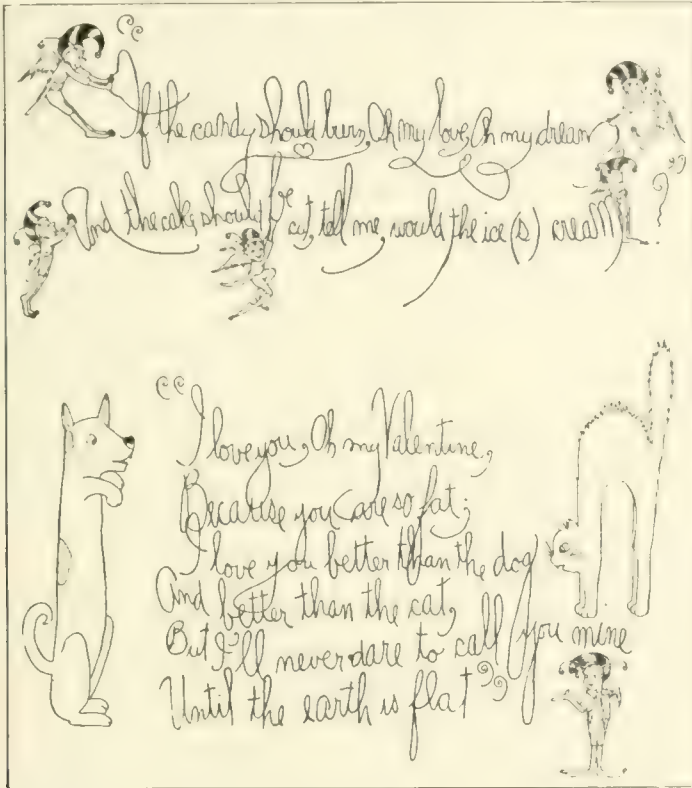 "If the candy should burn, Oh my love, Oh my dream
And the cake should be cut, tell me, would the ice(s) cream?"
"I love you, Oh my Valentine,
Because you are so fat;
I love you better than the dog
And better than the cat,
But I'll never dare to call you mine
Until the earth is flat"